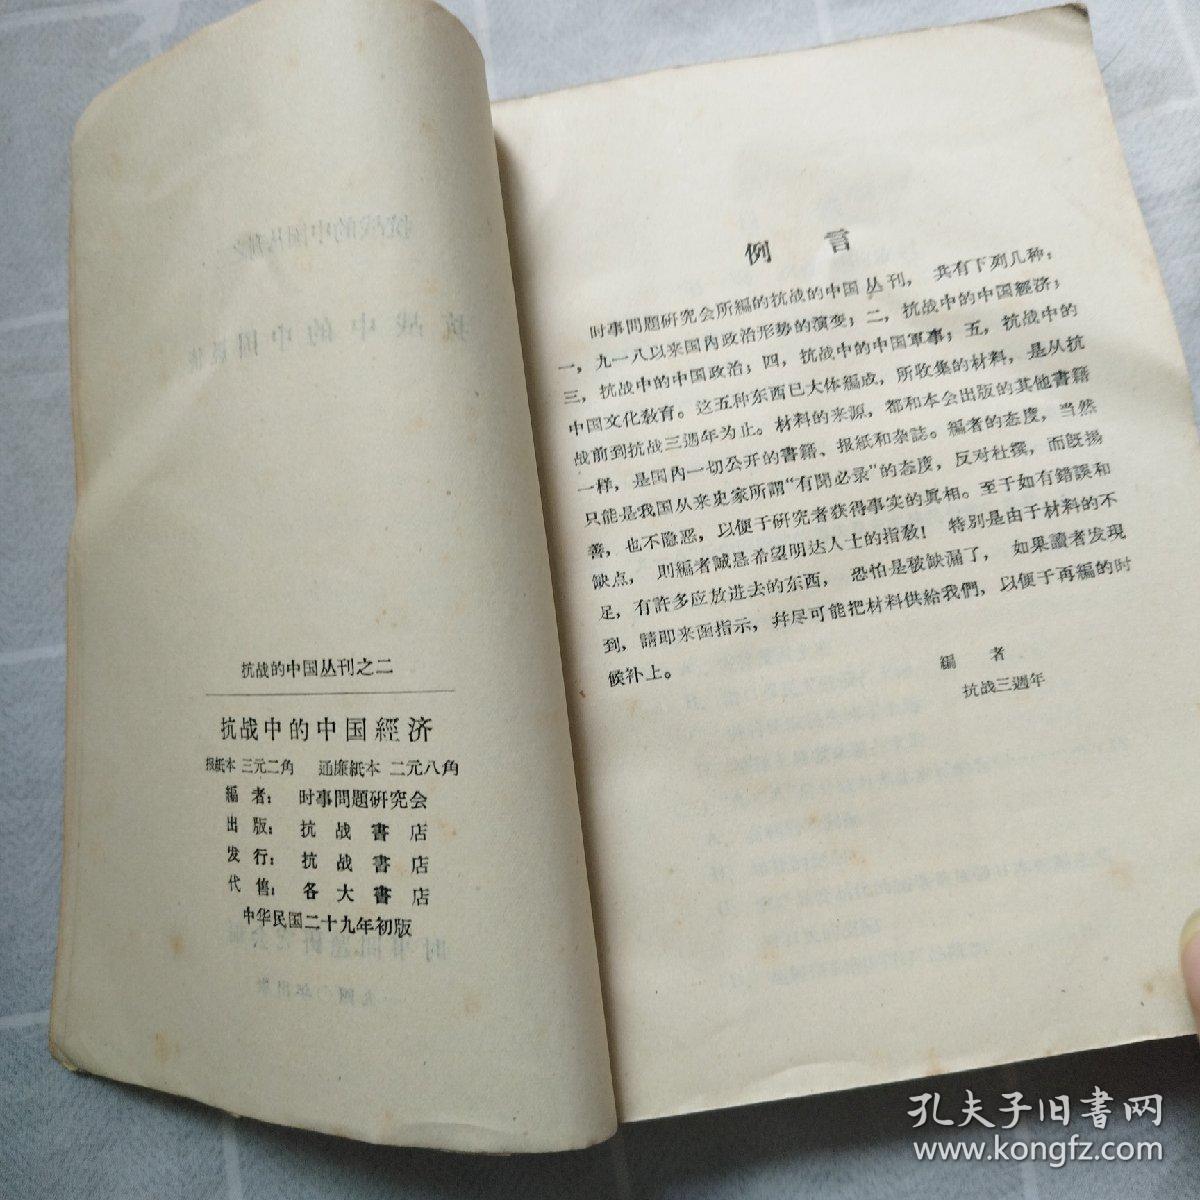 抗战的中国丛刊之二
抗战中的中国經济
报紙本 三元二角 通廉紙本 二元八角
編者: 时事問題研究会
出版: 抗战書店
发行: 抗战書店
代售: 各大書店
中华民国二十九年初版
例言
时事問題研究会所編的抗战的中国丛刊，共有下列几种：
一，九一八以来国内政治形势的演变；二，抗战中的中国經济；
三，抗战中的中国政治；四，抗战中的中国軍事；五，抗战中的
中国文化敎育。这五种东西已大体編成，所收集的材料，是从抗
战前到抗战三週年为止。材料的来源，都和本会出版的其他書籍
一样，是国内一切公开的書籍、报紙和杂誌。編者的态度，当然
只能是我国从来史家所謂“有聞必录”的态度，反对杜撰，而旣揚
善，也不隐恶，以便于研究者获得事实的眞相。至于如有錯誤和
缺点，则編者誠恳希望明达人士的指敎！特别是由于材料的不
足，有許多应放进去的东西，恐怕是被缺漏了，如果讀者发現
到，請即来函指示，幷尽可能把材料供給我們，以便于再編的时
候补上。
編者
抗战三週年
孔夫子旧书网
www.kongfz.com